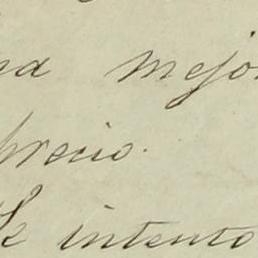 mejor
precio.
Se intento